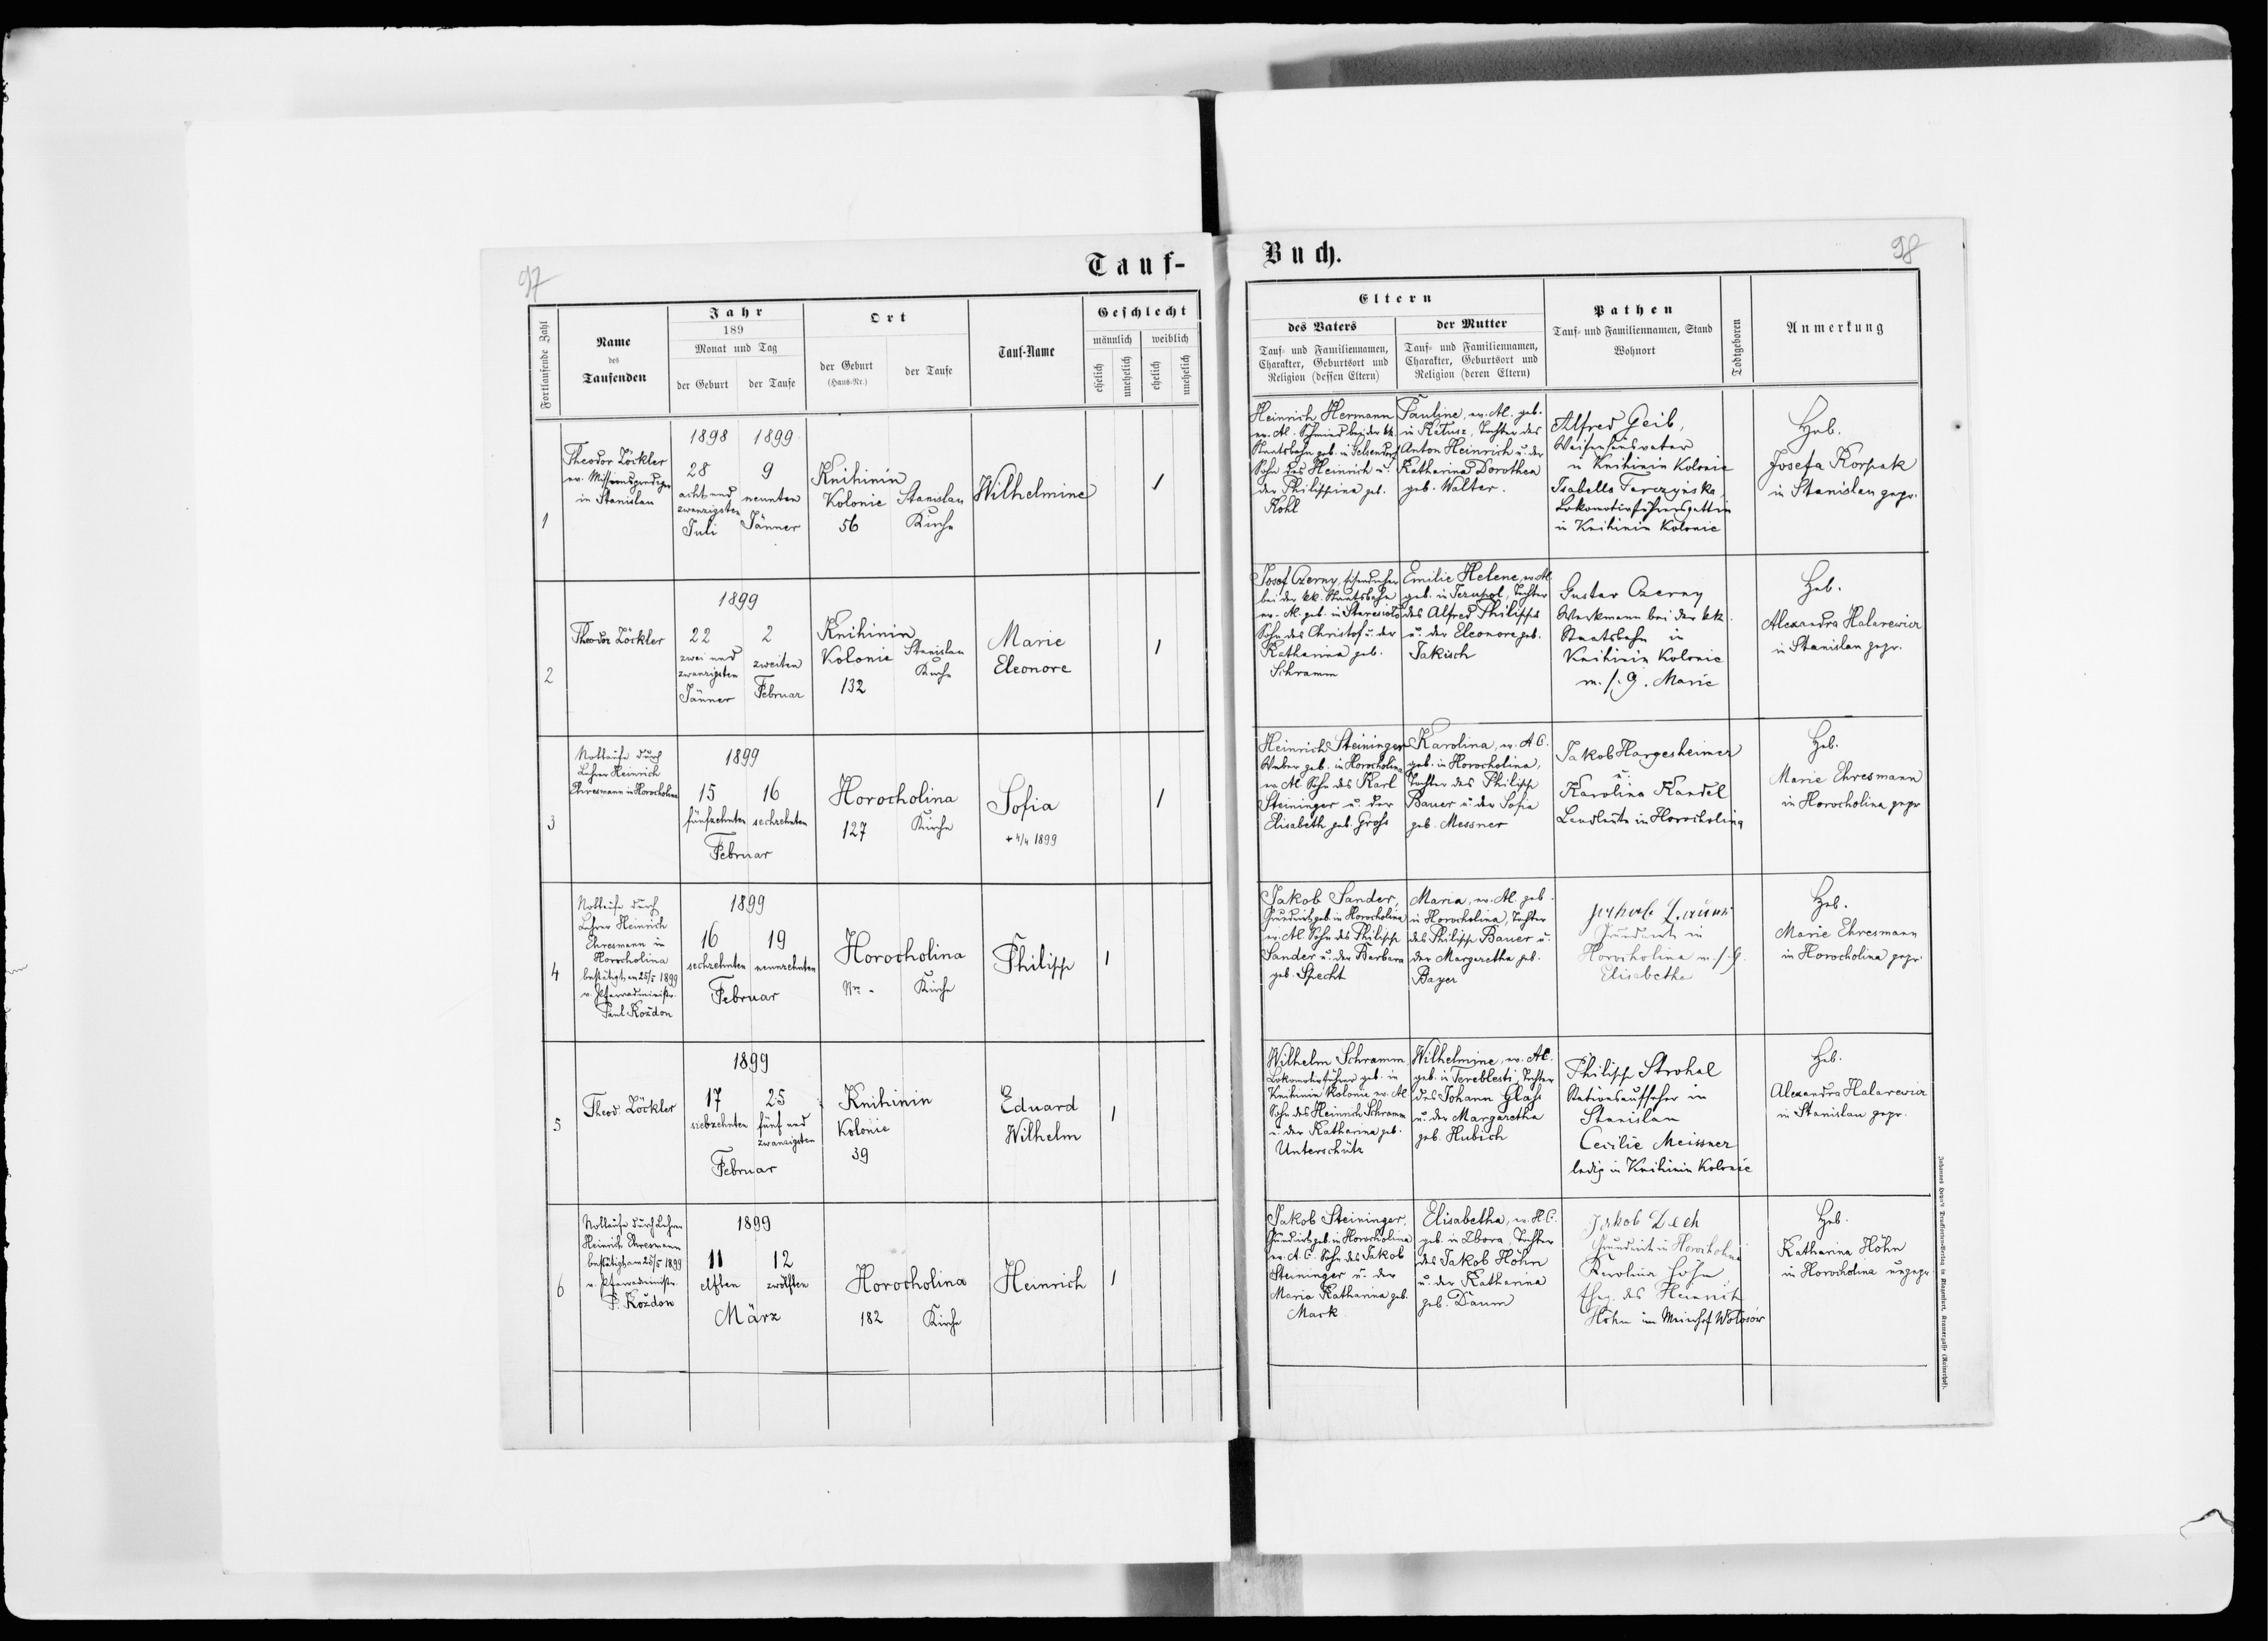 97
Tauf-
Fortlaufende Zahl
Name
des
Taufenden
Jahr
189
Monat und Tag
der Geburt
der Taufe
Ort
der Geburt
(Haus-Nr.)
der Taufe
Tauf-Name
Geschlecht
männlich
weiblich
ehelich
unehelich
ehelich
unehelich
1
Theodor Zöckler
ev. Missionsprediger
in Stanislau
1898
28
acht und
zwanzigsten
Juli
1899
9
neunten
Jänner
Knihinin
Kolonie
56
Stanislau
Kirche
Wilhelmine
1
2
Theodor Zöckler
1899
22
zwei und
zwanzigsten
Jänner
2
zweiten
Februar
Knihinin
Kolonie
132
Stanislau
Kirche
Marie
Eleonore
1
3
Nottaufe durch
Lehrer Heinrich
Ehresmann in Horocholina
1899
15
fünfzehnten
16
sechzehnten
Februar
Horocholina
127
Kirche
Sofia
+ 4/4 1899
1
4
Nottaufe durch
Lehrer Heinrich
Ehresmann in
Horocholina
bestätigt am 25/5 1899
v. Pfarradministr.
Paul Kożdon
1899
16
sechzehnten
19
neunzehnten
Februar
Horocholina
Nr. -
Kirche
Philipp
1
5
Theod. Zöckler
1899
17
siebzehnten
25
fünf und
zwanzigsten
Februar
Knihinin
Kolonie
39
Eduard
Wilhelm
1
6
Nottaufe durch Lehrer
Heinrich Ehresmann
bestätigt am 25/5 1899
v. Pfarradministr.
P. Kożdon
1899
11
elften
12
zwölften
März
Horocholina
182
Kirche
Heinrich
1
Buch.
98
Eltern
des Vaters
Tauf- und Familiennamen,
Charakter, Geburtsort und
Religion (dessen Eltern)
der Mutter
Tauf- und Familiennamen,
Charakter, Geburtsort und
Religion (deren Eltern)
Pathen
Tauf- und Familiennamen, Stand
Wohnort
Todtgeboren
Anmerkung
Heinrich Hermann
ev. AC. Schmied bei der kk.
Staatsbahn geb. in
Sohn des Heinrich u.
der Philippina geb.
Kohl
Pauline, ev. AC. geb.
in Kałusz, Tochter des
Anton Heinrich u. der
Katharina Dorothea
geb. Walter.
Alfred Geib,
Waisenhausvater
in Knihinin Kolonie
Isabella Tarczyńska,
Lokomotivführersgattin
in Knihinin Kolonie
Heb.
Josefa Korpak
in Stanislau gepr.
Josef Czerny, Eisendreher
bei der kk. Staatsbahn
ev. AC. geb. in
Sohn des Christof u. der
Katharina geb.
Schramm
Emilie Helene, ev. AC.
geb. in Tarnopol, Tochter
des Alfred Philipps
u. der Eleonore geb.
Jakisch
Gustav Czerny
Werkmann bei der kk.
Staatsbahn in
Knihinin Kolonie
m. s. G. Marie
Heb.
Alexandra Halarewicz
in Stanislau gepr.
Heinrich Steininger
Weber geb. in Horocholina
ev. AC. Sohn des Karl
Steininger u. der
Elisabeth geb. Groß
Karolina, ev. AC.
geb. in Horocholina,
Tochter des Philipp
Bauer u. der Sofia
geb. Messner
Jakob Hargesheimer
u.
Karolina Kandel
Landleute in Horocholina
Heb.
Marie Ehresmann
in Horocholina gepr
Jakob Sander,
Grundwirt geb. in Horocholina
ev. AC. Sohn des Philipp
Sander u. der Barbara
geb. Specht
Maria, ev. AC. geb.
in Horocholina, Tochter
des Philipp Bauer u.
der Margaretha geb.
Bayer
Jakob
Grundwirt in
Horocholina m. s. G.
Elisabetha
Heb.
Marie Ehresmann
in Horocholina gepr.
Wilhelm Schramm
Lokomotivführer geb. in
Knihinin Kolonie ev. AC
Sohn des Heinrich Schramm
u. der Katharina geb.
Unterschütz
Wilhelmine, ev. AC.
geb. in Tereblesti, Tochter
des Johann Glass
u. der Margaretha
geb. Hubich
Philipp Strohal
Stationsaufseher in
Stanislau
Cecilie Meissner
ledig in Knihinin Kolonie
Heb.
Alexandra Halarewicz
in Stanislau gepr.
Jakob Steininger,
Grundwirt geb. in Horocholina
ev. A.C. Sohn des Jakob
Steininger u. der
Maria Katharina geb.
Mark
Elisabetha, ev. H.C.
geb. in Zbora, Tochter
des Jakob Höhn
u. der Katharina
geb. Daum
Jakob Zech
Grundwirt in Horocholina
Karolina Höhn
Eheg. des Heinrich
Höhn im Meierhof Wołosów
Heb.
Katharina Höhn
in Horocholina ungepr